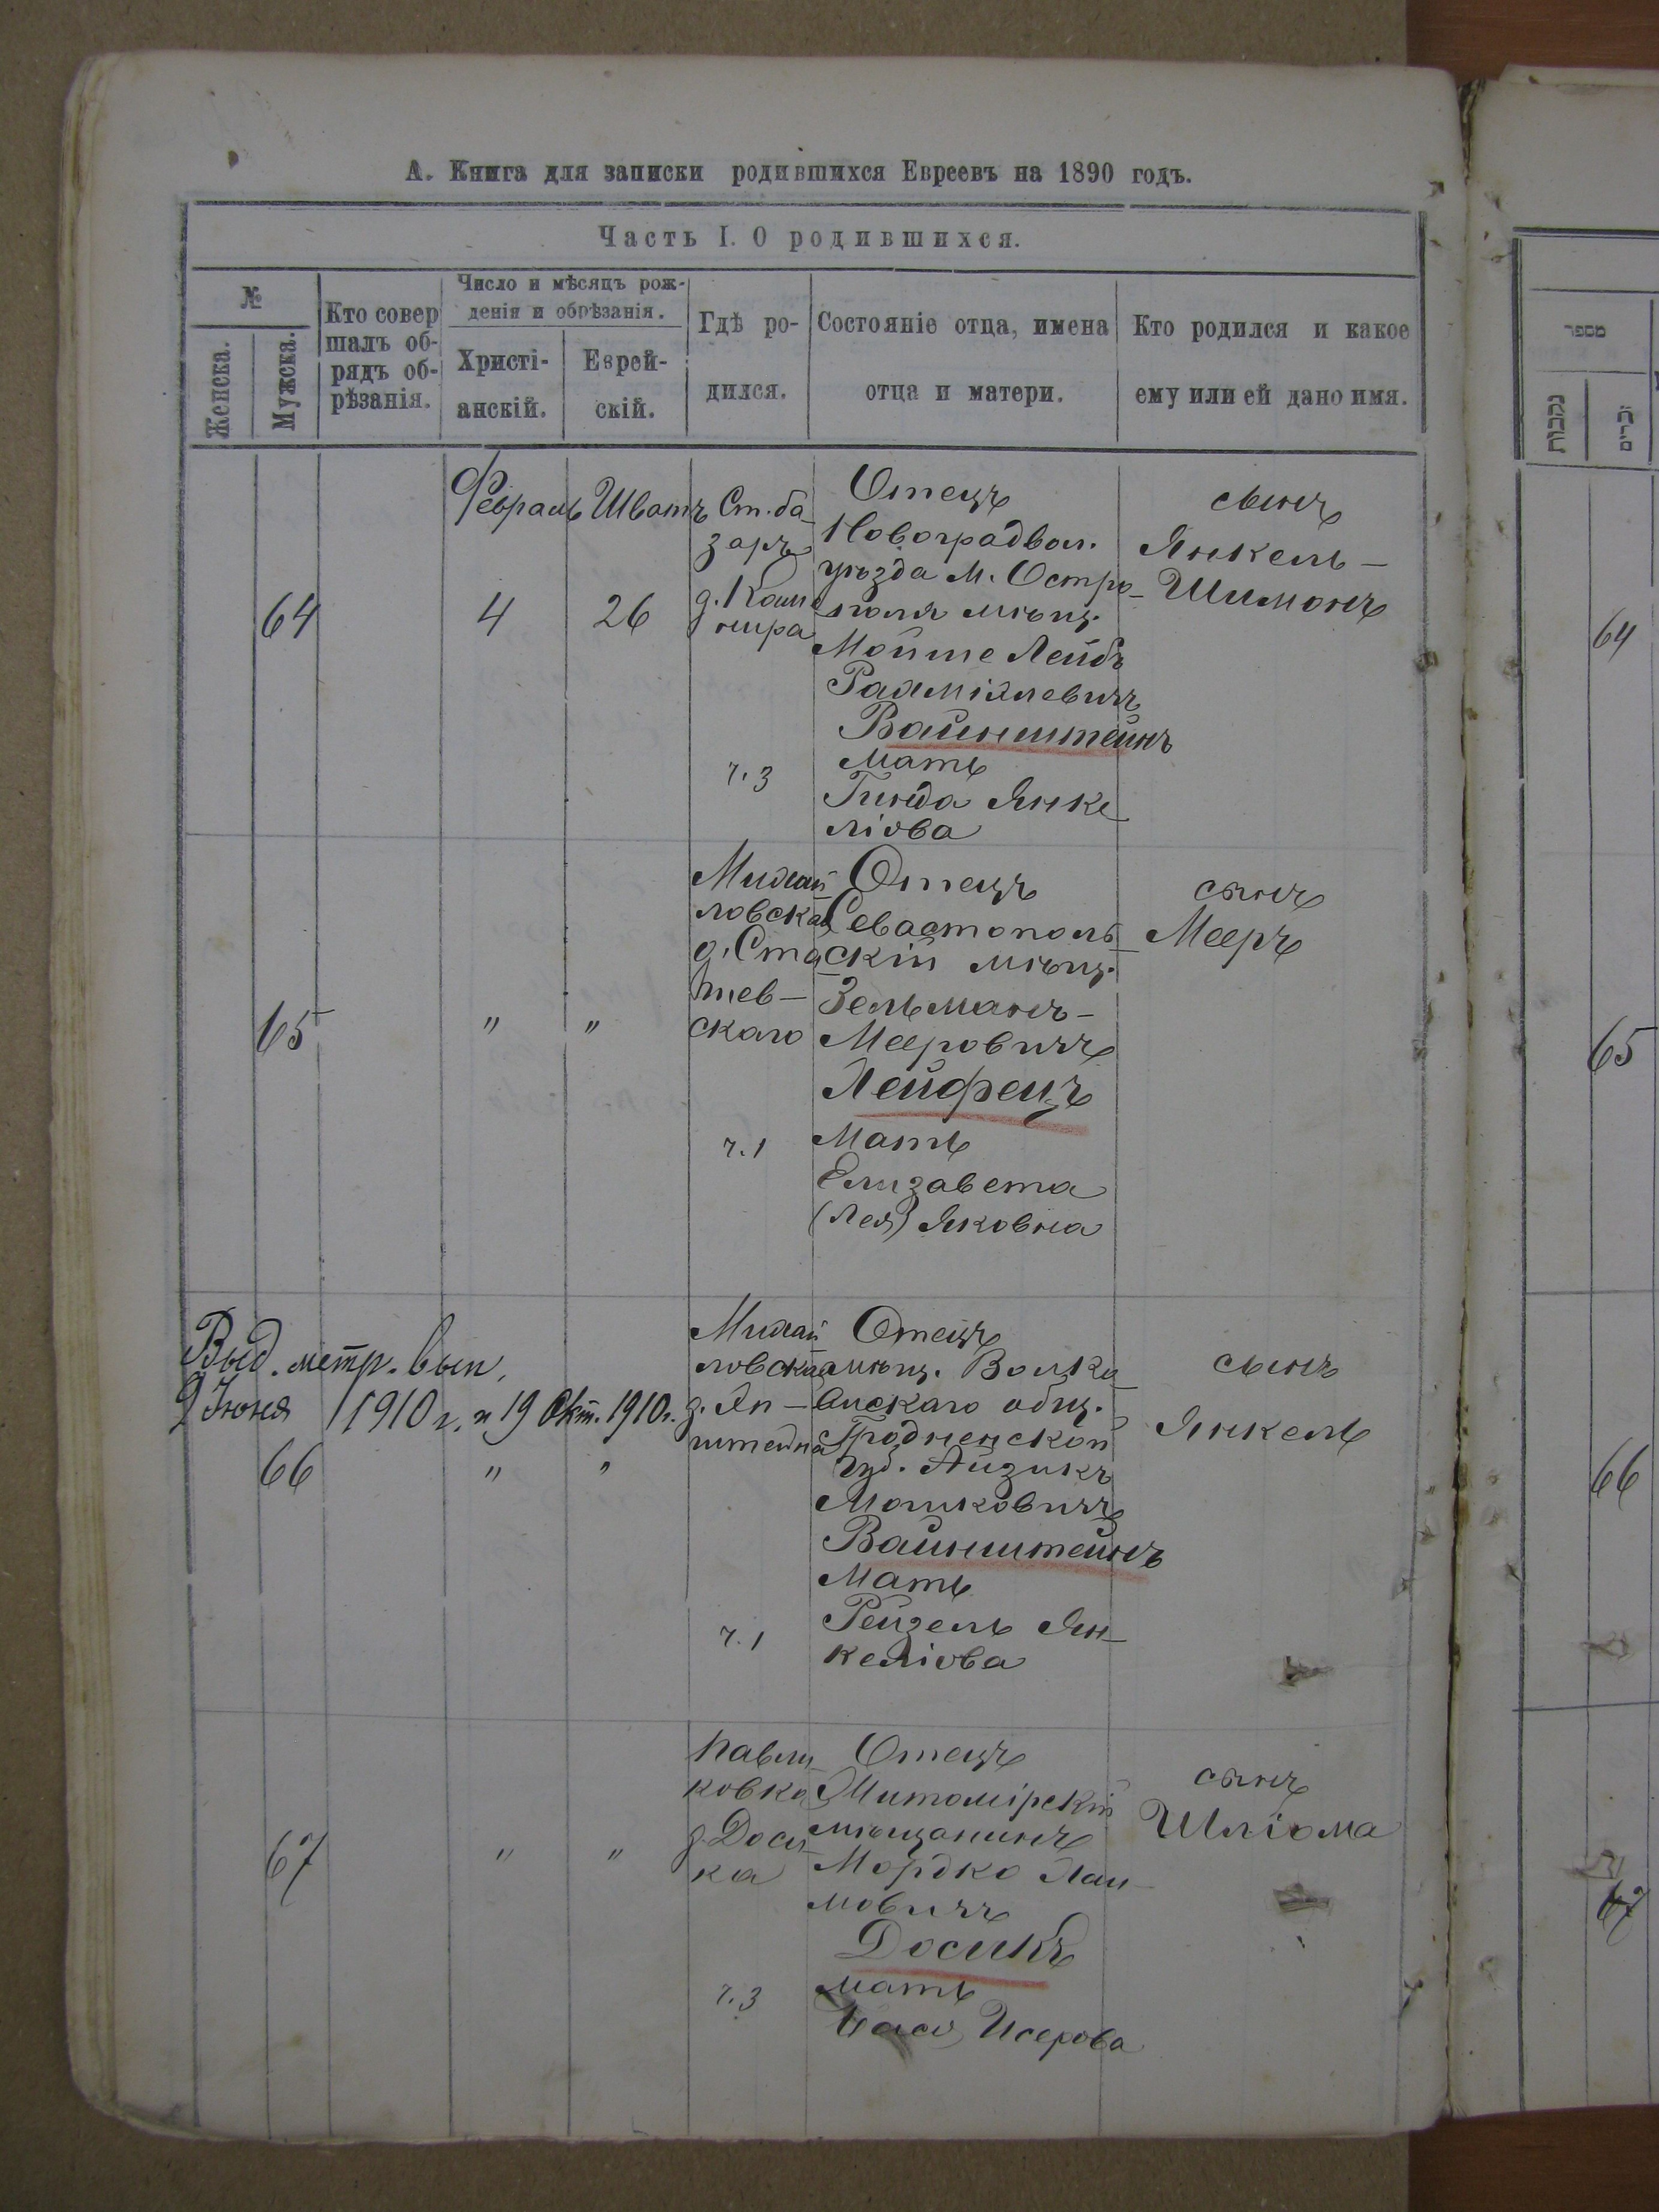 А. Книга для записки родившихся Евреевъ на 1890 годъ.
Часть I. О родившихся.
№
Женска.
Мужска.
Кто совер
шалъ об-
рядъ об-
рѣзанія.
Число и мѣсяцъ рож-
денія и обрѣзанія.
Христі-
анскій.
Еврей-
скій.
Гдѣ ро-
дился.
Состояніе отца, имена
отца и матери.
Кто родился и какое
ему или ей дано имя.
64
Февраль
4
Шватъ
26
Ст. ба-
заръ
д.
ч. 3
Отецъ
Новоградвол.
уѣзда м. Остро-
поля мѣщ.
Мойше Лейбъ
Вайнштейнъ
Мать
Янке-
ліова
сынъ
Янкель-
Шимонъ
65
"
"
Михай
ловская
д. Ста
шев-
скаго
ч. 1
Отецъ
Севастополь-
скій мѣщ.
Зельманъ-
Мееровичъ
Лейфецъ
Мать
Елизавета
(Лея) Яковна
сынъ
Мееръ
Выд. метр. вып.
9 Іюня 1910 г. и 19 Окт. 1910 г.
66
"
"
Михай
ловская
д. Эп-
штейна
ч. 1
Отецъ
мѣщ. Волко-
вискаго общ.
Гродненской
губ. Айзикъ
Мошковичъ
Вайнштейнъ
Мать
Рейзель Ян-
келіова
сынъ
Янкель
67
"
"
Павли-
ковка
д. Доси-
ка
ч. 3
Отецъ
Житомірскій
мѣщанинъ
Мордко Хаи-
мовичъ
Досикъ
мать
Исерова
сынъ
Шліома
מספר
נקבות
זכרים
64
65
66
67